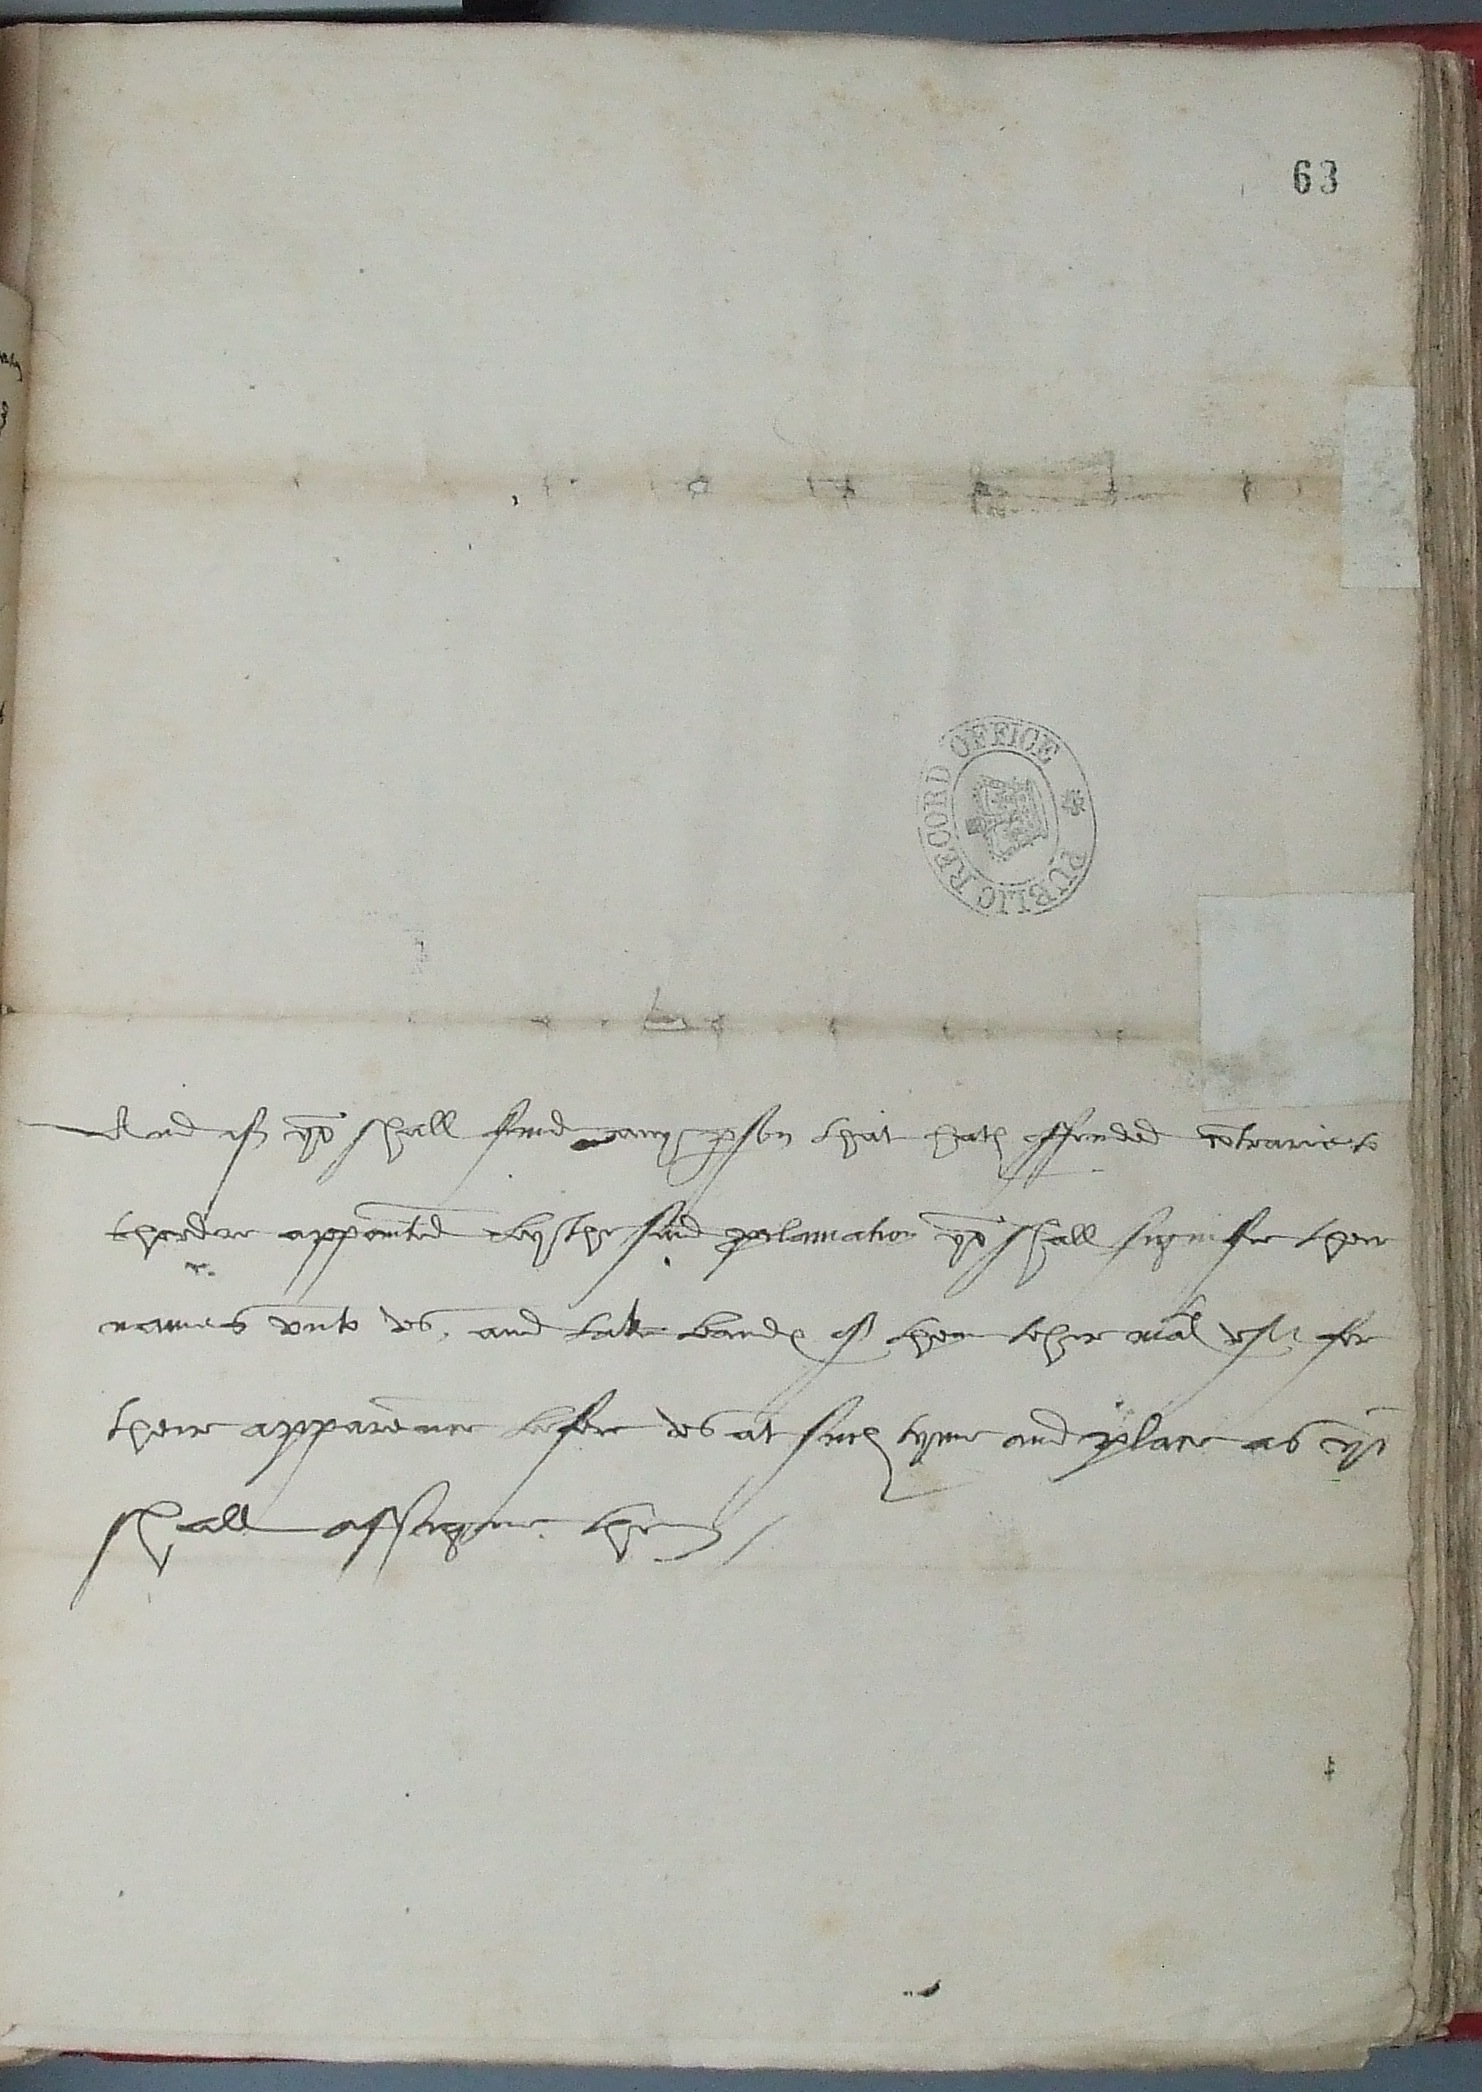 63
PUBLIC RECORD OFFICE
And if ye shall fynd any pson that hath offended cōtrarie to
thordre appointed by the said pclamation ye shall signifie their
names unto us, and take bands of them to
their apparence before us at such tyme and place as ye
shall assigne them